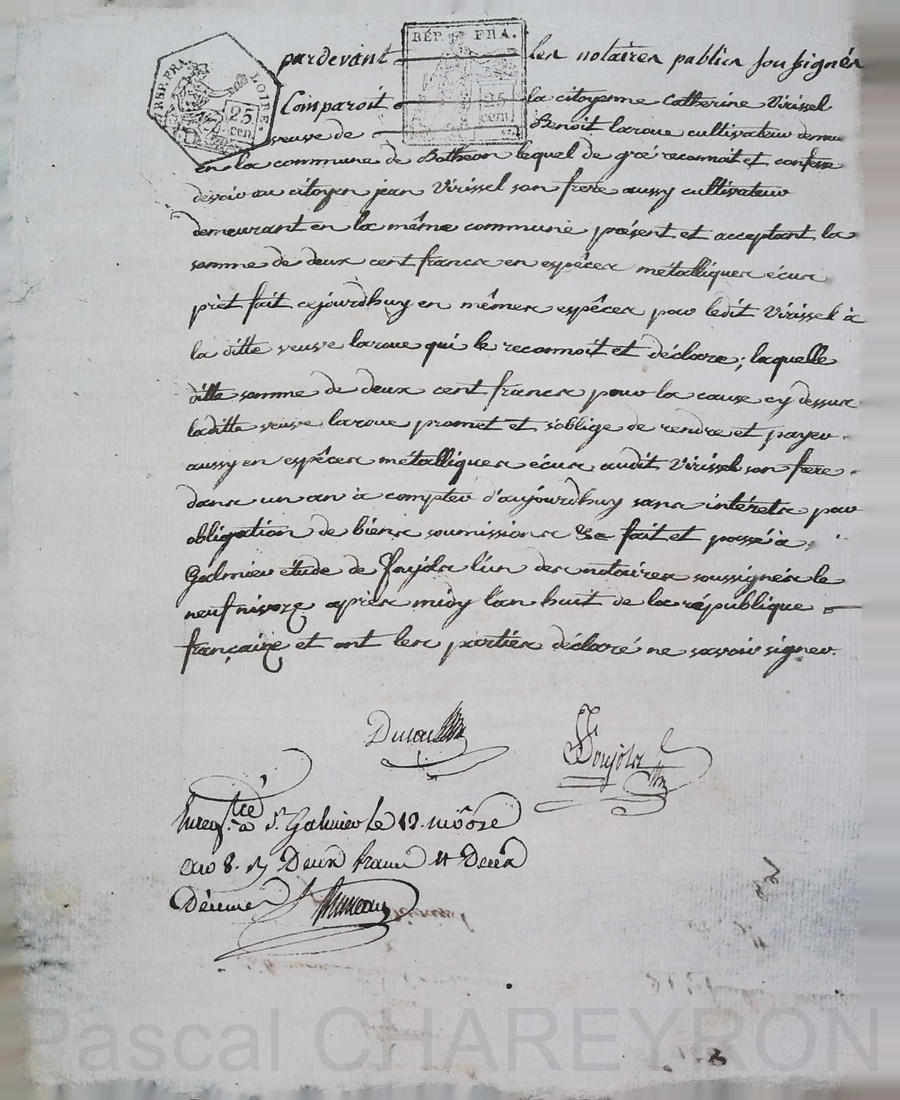 RÉP. FRA.
25
cen
LOIRE.
25
cen
pardevant les notaires publics soussignés
Comparoit la citoyenne Catherine Virissel
veuve de Benoit laroue cultivateur demeu
en la commune de Bothéon lequel de gré reconnoit et confesse
devoir au citoyen jean Virissel son frere aussy cultivateur
demeurant en la même commune présent et acceptant la
somme de deux cent francs en espêces métalliques écus
prêt fait cejourdhuy en mêmes espêces par ledit Virissel à
la ditte veuve laroue qui le reconnoit et déclare ; laquelle
ditte somme de deux cent francs pour la cause cy dessus
laditte veuve laroue promet et s'oblige de rendre et payer
aussy en espêces métalliques écus audit Virissel son frere
dans un an à compter d'aujourdhuy sans intérets par
obligation de biens soumissions &c fait et passé à
Galmier étude de Faÿolx l'un des notaires soussignés le
neuf nivoze après midy l'an huit de la république
françaize et ont les parties déclaré ne savoir signer.
à St. Galmier le 12. nivôse
an 8. Deux francs Deux
Décimes
Pascal CHAREYRON